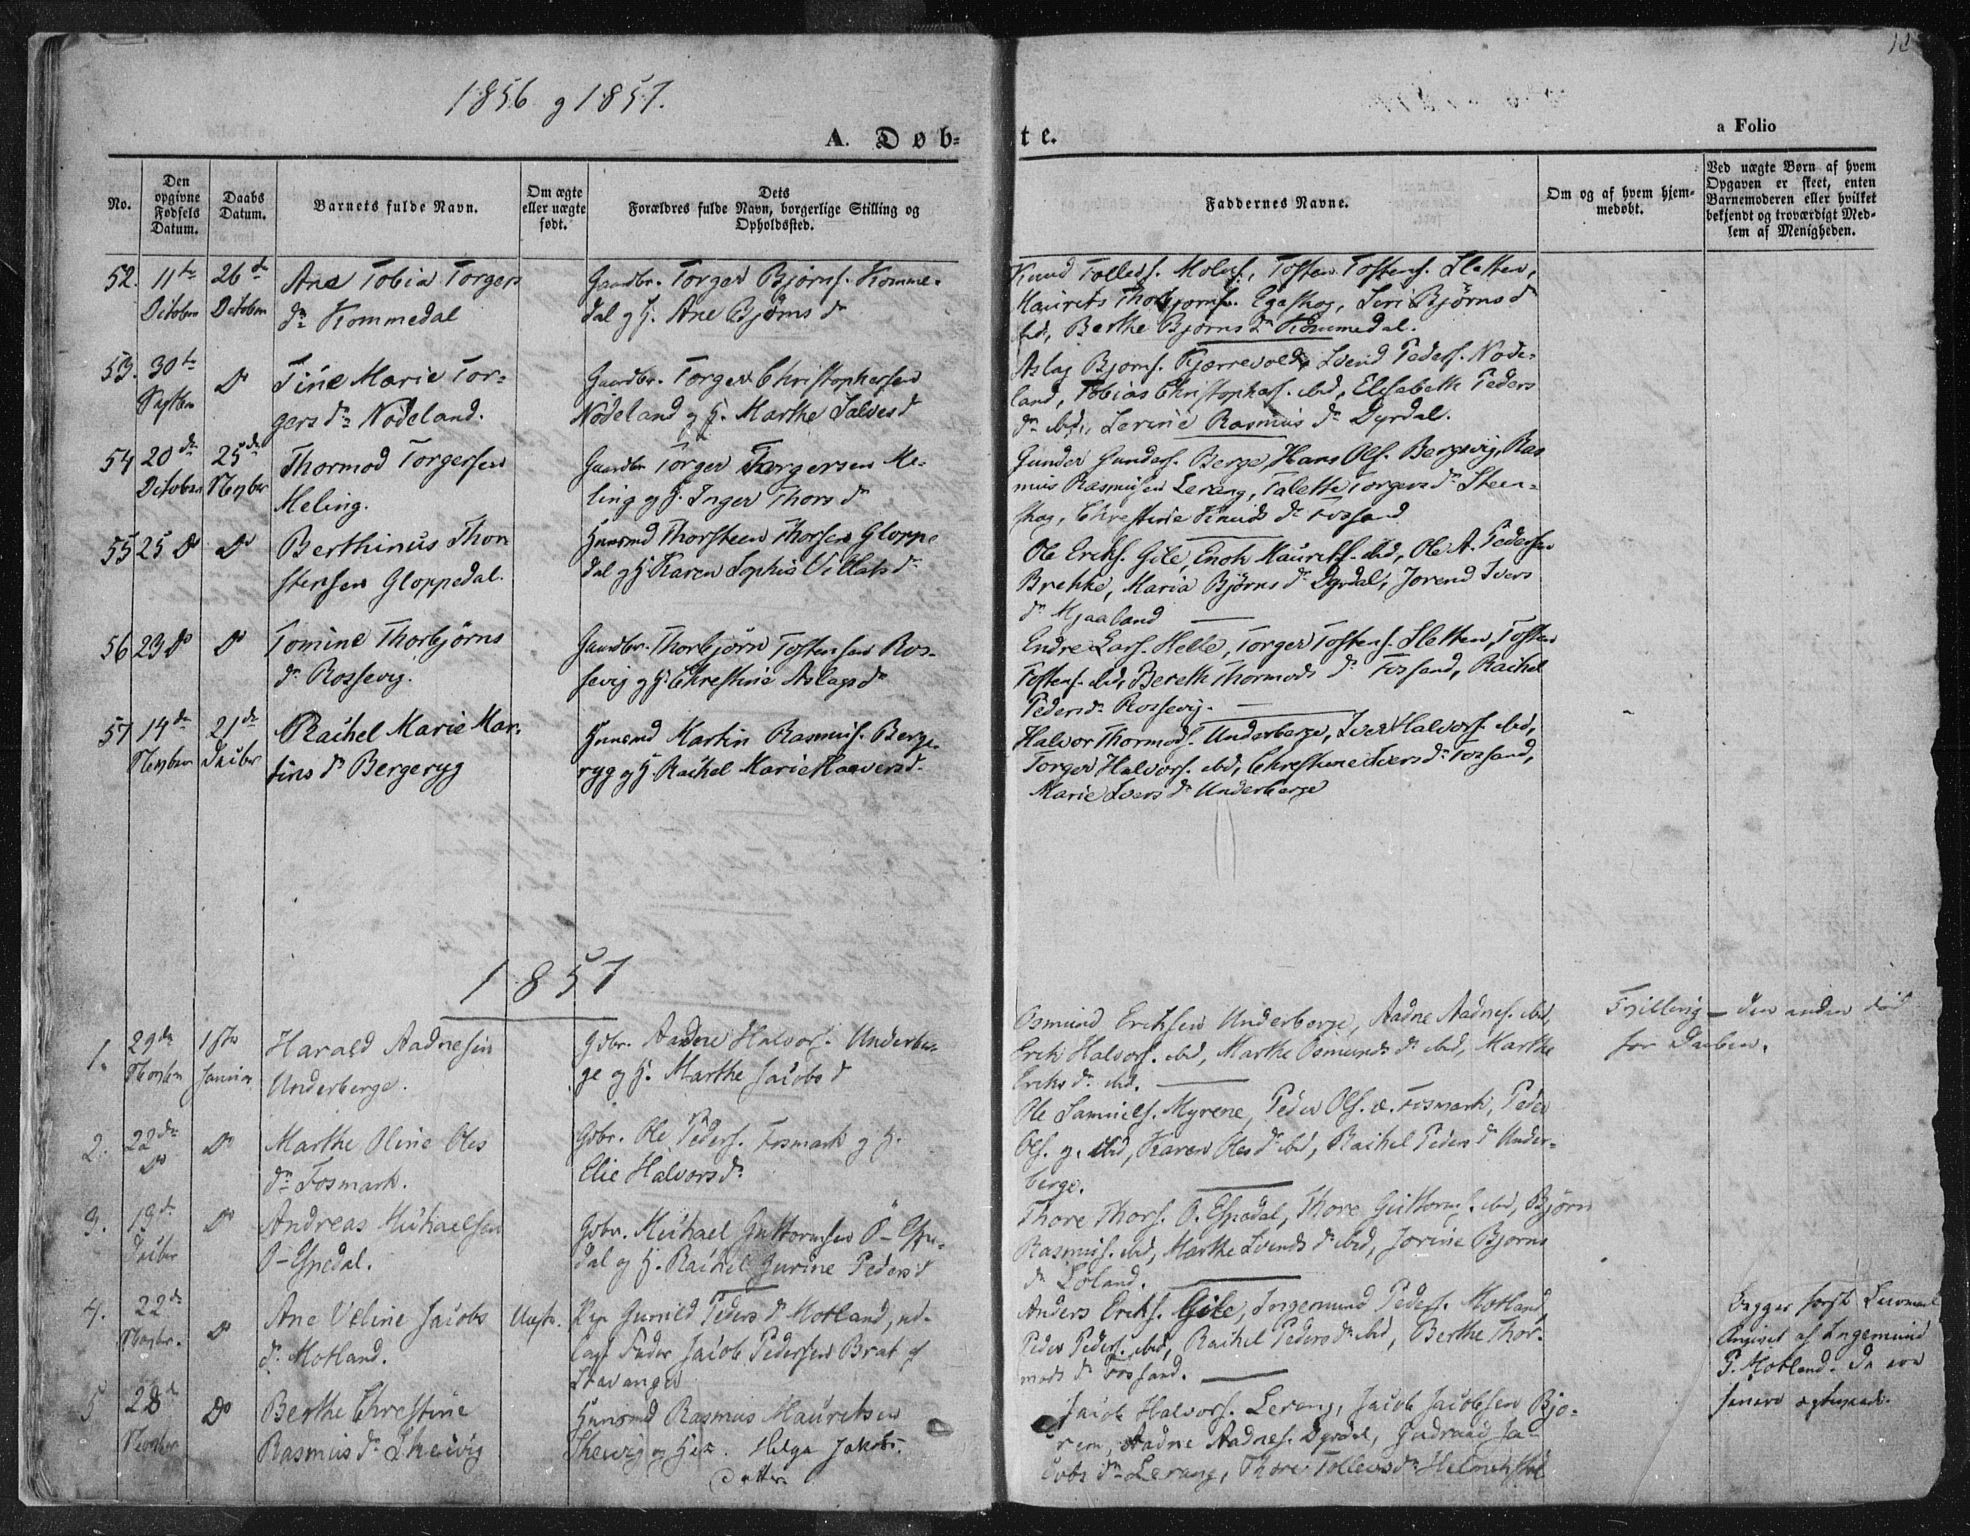 1856 g 1857.
12
A. Døb-
te.
a Folio
No.
Den opgivne Fødsels Datum.
Daabs Datum.
Barnets fulde Navn.
Om ægte eller uægte født.
Dets Forældres fulde Navn, borgerlige Stilling og Opholdssted.
Faddernes Navne.
Om og af hvem hjemmedøbt.
Ved uægte Børn af hvem Opgaven er skeet, enten Barnemoderen eller hvilket bekjendt og troværdigt Medlem af Menigheden.
52. 11te October
26de October
Ane Tobia Torgers
dr Kommedal
Gaardbr. Torger Bjørns. Komme-
dal g H. Ane Bjørns dr
Knud Tollevs. Molaug, Tosten Tostens. Sletten,
Maurits Thorbjørns. Egeskog, Siri Bjørns d
ibd, Berthe Bjørns dr Kommedal.
53. 30te Septbr
Do
Tine Marie Tor-
gers dr Nødeland.
Gaardbr. Torger Christophersen
Nødeland g H. Marthe Salves d
Aslag Bjørns. Kjærrevold, Svend Peders. Nøde-
land, Tobias Christophers. ibd, Elisabeth Peders
dr ibd, Serine Rasmus dr Dyrdal.
54 20de October
25de Novbr
Thormod Torgersen
Meling.
Gaardbr Torger Torgersen Me-
ling g H. Inger Thors dr
Gunder Gunders. Berge, Hans Ols. Bergevig, Ras
mus Rasmusen Lerang, Talette Torgers dr Steen-
skog, Christine Knuds dr Fossand
55 25 Do
Do
Berthinus Thor
stensen Gloppedal.
Huusmd Thorsteen Thorsen Gloppe
dal g H. Karen Sophia Villats dr
Ole Eriks. Gile, Enok Maurits. ibd, Ole A. Pedersen
Brekke, Maria Bjørns dr Dyrdal, Jorend Ivers
dr Mjaaland
56 23 Do
Do
Tomine Thorbjørns
dr Rossevig.
Gaardbr. Thorbjørn Tostensen Ros-
sevig g H. Christine Aslags dr
Endre Lars. Helle, Torger Tostens. Sletten, Tosten
Tostens. ibd, Bereth Thormods dr Fossand, Rachel
Peders dr Rossevig.
57 14de Novbr
21de Decbr
Rachel Marie Mar-
tins dr Bergeryg
Huusmd Martin Rasmus. Berge-
ryg g H. Rachel Marie Haavers d.
Halvor Thormods. Underberge, Iver Halvors. ibd,
Torger Halvors. ibd, Christine Ivers dr Fossand,
Marie Ivers dr Underberge
1857
1. 29de Novbr
1ste Januar
Harald Aadnesen
Underberge.
Gdbr. Aadne Halvors. Underber-
ge og H. Marthe Jacobs d
Osmund Eriksen Underberge, Aadne Aadnes. ibd,
Erik Halvors. ibd, Marthe Osmunds dr ibd, Marthe
Eriks dr ibd.
Tvilling - den anden død
før Daaben.
2. 22de Do
Do
Marthe Oline Oles
dr Fosmark.
Gdbr. Ole Peders. Fosmark g H.
Elie Halvors dr
Ole Samuels. Myrene, Peder Ols. æ. Fosmark, Peder
Ols. y. ibd, Karen Oles dr ibd, Rachel Peders dr Under-
berge.
3. 19de Decbr
Do
Andreas Michaelsen
Ø-Espedal.
Gdbr. Michael Guttormsen Ø-Espe-
dal og H. Rachel Jurine Peders d
Thore Thors. Ø. Espedal, Thore Guttorms. ibd, Bjørn
Rasmus. ibd, Marthe Svends dr ibd, Jorine Bjørns
dr Løland.
4. 22de Novbr.
Do
Ane Veline Jacobs
dr Motland.
Uægte.
Pige Gunild Peders dr Motland, ud-
lagt Fader Jacob Pedersen Brat af
Stavanger
Anders Eriks. Gile, Ingemund Peders. Motland
Peder Peders. ibd, Rachel Peders dr ibd, Berthe Thor-
mods dr Fossand.
Begges første Leiermaal
Angivet af Ingemund
P. Motland. Da
senere ægteviede.
5 28 Novbr
Do
Berthe Christine
Rasmus dr Skeivig
Huusmd Rasmus Mauritsen
Skeivig og H. Helga Jakobs.
datter
Jacob Halvors. Lerang, Jacob Jacobsen Bjø-
rem, Aadne Aadnes. Dyrdal, Gudraad Ja-
cobs dr Lerang, Thore Tollevs dr Helmikstøl